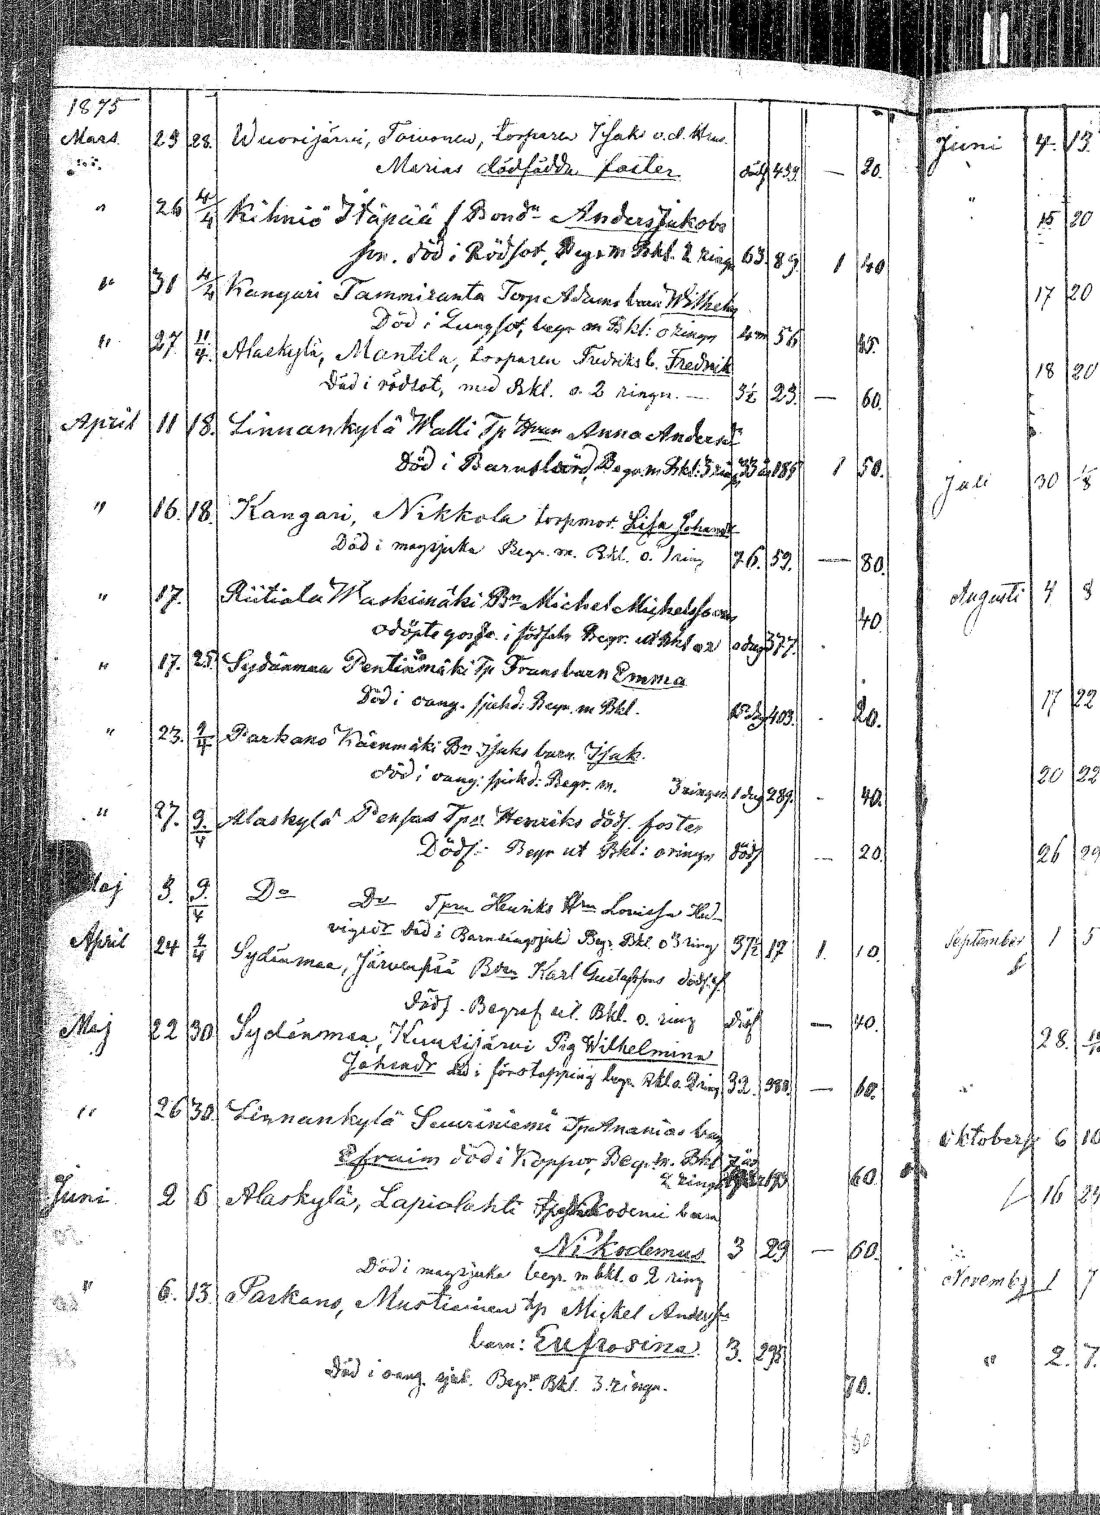 1875
Mars 23 28. Wuorijärvi, Toivonen, torparen Isak o.d. Hus.
Marias dödfödda foster dödf 459. — 20.
" 26 4/4 Kihniö Itäpää f Bonden Anders Jakobs
son. död i Rödsot, Begr m Bkl. 2 ringn 63. 89. 1 40
" 31 4/4 Kangari Tammiranta Torp Adams barn Wilhelm
Död i Lungsot, begr m Bkl: o ringn 4 m 56
" 27 11/4. Alaskylä, Mantila, torparen Fredriks b. Fredrik
Död i rödsot, med Bkl. o. 2 ringn. — 3½ 23. — 60.
April 11 18. Linnankylä Walli Tp Hrun Anna Andersd
Död i Barnsbörd, Begr. m Bkl: 3 ringn 33 185 1 50.
" 16. 18. Kangari, Nikkola torpmor. Lisa Johansd
Död i magsjuka Begr. m. Bkl. o. 1 ring 76. 59. — 80.
" 17. Riitiala Waskimäki Bn Michel Michelsson
odöpte gosse. i födseln Begr. ut Bkl o 2 o dag 377. . 40.
" 17. 25. Sydänmaa Pentinmäki Tp Frans barn Emma
Död i oang. sjukd: Begr. m Bkl. 403. - 20.
" 23. 2/4 Parkano Käenmäki Bn Isaks barn Isak.
död i oang: sjukd: Begr. m. 3 ringn 1 dag 289. - 40.
" 27. 9./4 Alaskylä Pensas Tpn Henriks dödf. foster
Dödf: Begr ut Bkl: o ringn dödf — 20.
Maj 3. 9./4 Do Do Tprn Henriks Hru Lovissa Hed-
vigsdr död i Barnsängssjukd Begr. Bkl. o 3 ring 37½ 17 1. 10.
April 24 2/4 Sydänmaa, Järvenpää Bden Karl Gustafssons dödf. f.
Dödf. Begraf ut. Bkl. o. ring Dödf — 40.
Maj 22 30 Sydänmaa, Kuusijärvi Pig Wilhelmina
Johansdr död i förstoppning begr. Bkl o 2 ring 32. — 60.
" 26 30. Linnankylä Suuriniemi Tp Ananias barn
Efraim död i Koppor, Begr. m. Bkl
2 ringn 60.
Juni 2 6 Alaskylä, Lapiolahti barn
Nikodemus 3 29 — 60.
Död i magsjuka begr. m bkl. o 2 ring
" 6. 13. Parkano, Mustiainen tp Mickel Anderss
barn: Eufrosina. 3. 295
Död i oang. sjuk. Begr. Bkl. 3. ringn. 70.
Juni 4. 13
" 15 20
17 20
18 20
Juli 30 1/8
Augusti 4 8
17 22
20 22
26 29
September 1 5
28.
Oktober 6 10
16 24
Novemb 1 7
" 2. 7.